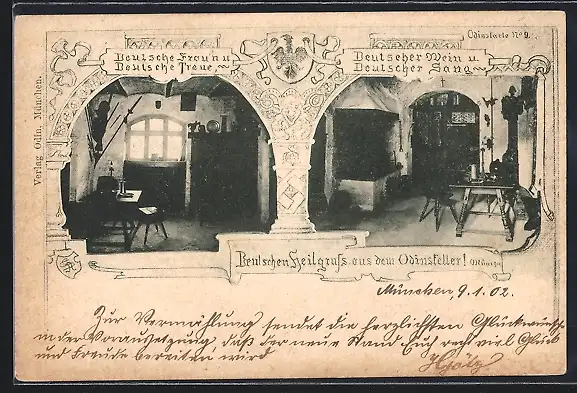 Odinskarte No 9.
Deutsche Frau'n u.
Deutsche Treue
Deutscher Wein u.
Deutscher Sang
Verlag Odin, München.
Deutschen Heilgruß aus dem Odinskeller!
München, 9.1.02.
Zur Vermählung sendet die herzlichsten Glückwünsche
in der Voraussetzung, daß der neue Stand Euch recht viel Glück
und Freude bereiten wird